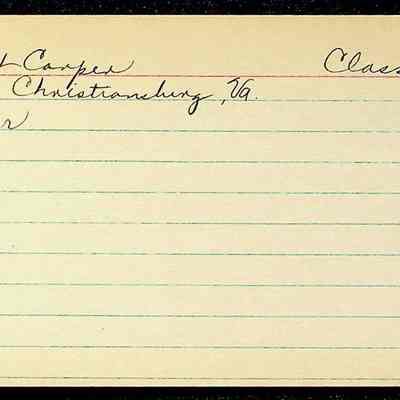 Carper Class
Christiansburg, Va.